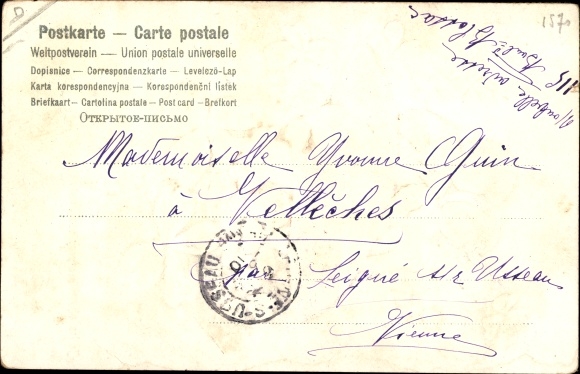 Postkarte — Carte postale
Weltpostverein — Union postale universelle
Dopisnice — Correspondenzkarte — Levelező-Lap
Karta korespondencyjna — Korespondenční lístek
Briefkaart — Cartolina postale — Post card — Brefkort
Открытое-письмо
D
1570
Nouvelle adresse
115
Mademoiselle Yvonne Guin
à Vellèches
par Leigné s/z Usseau
Vienne
S-USSEAU